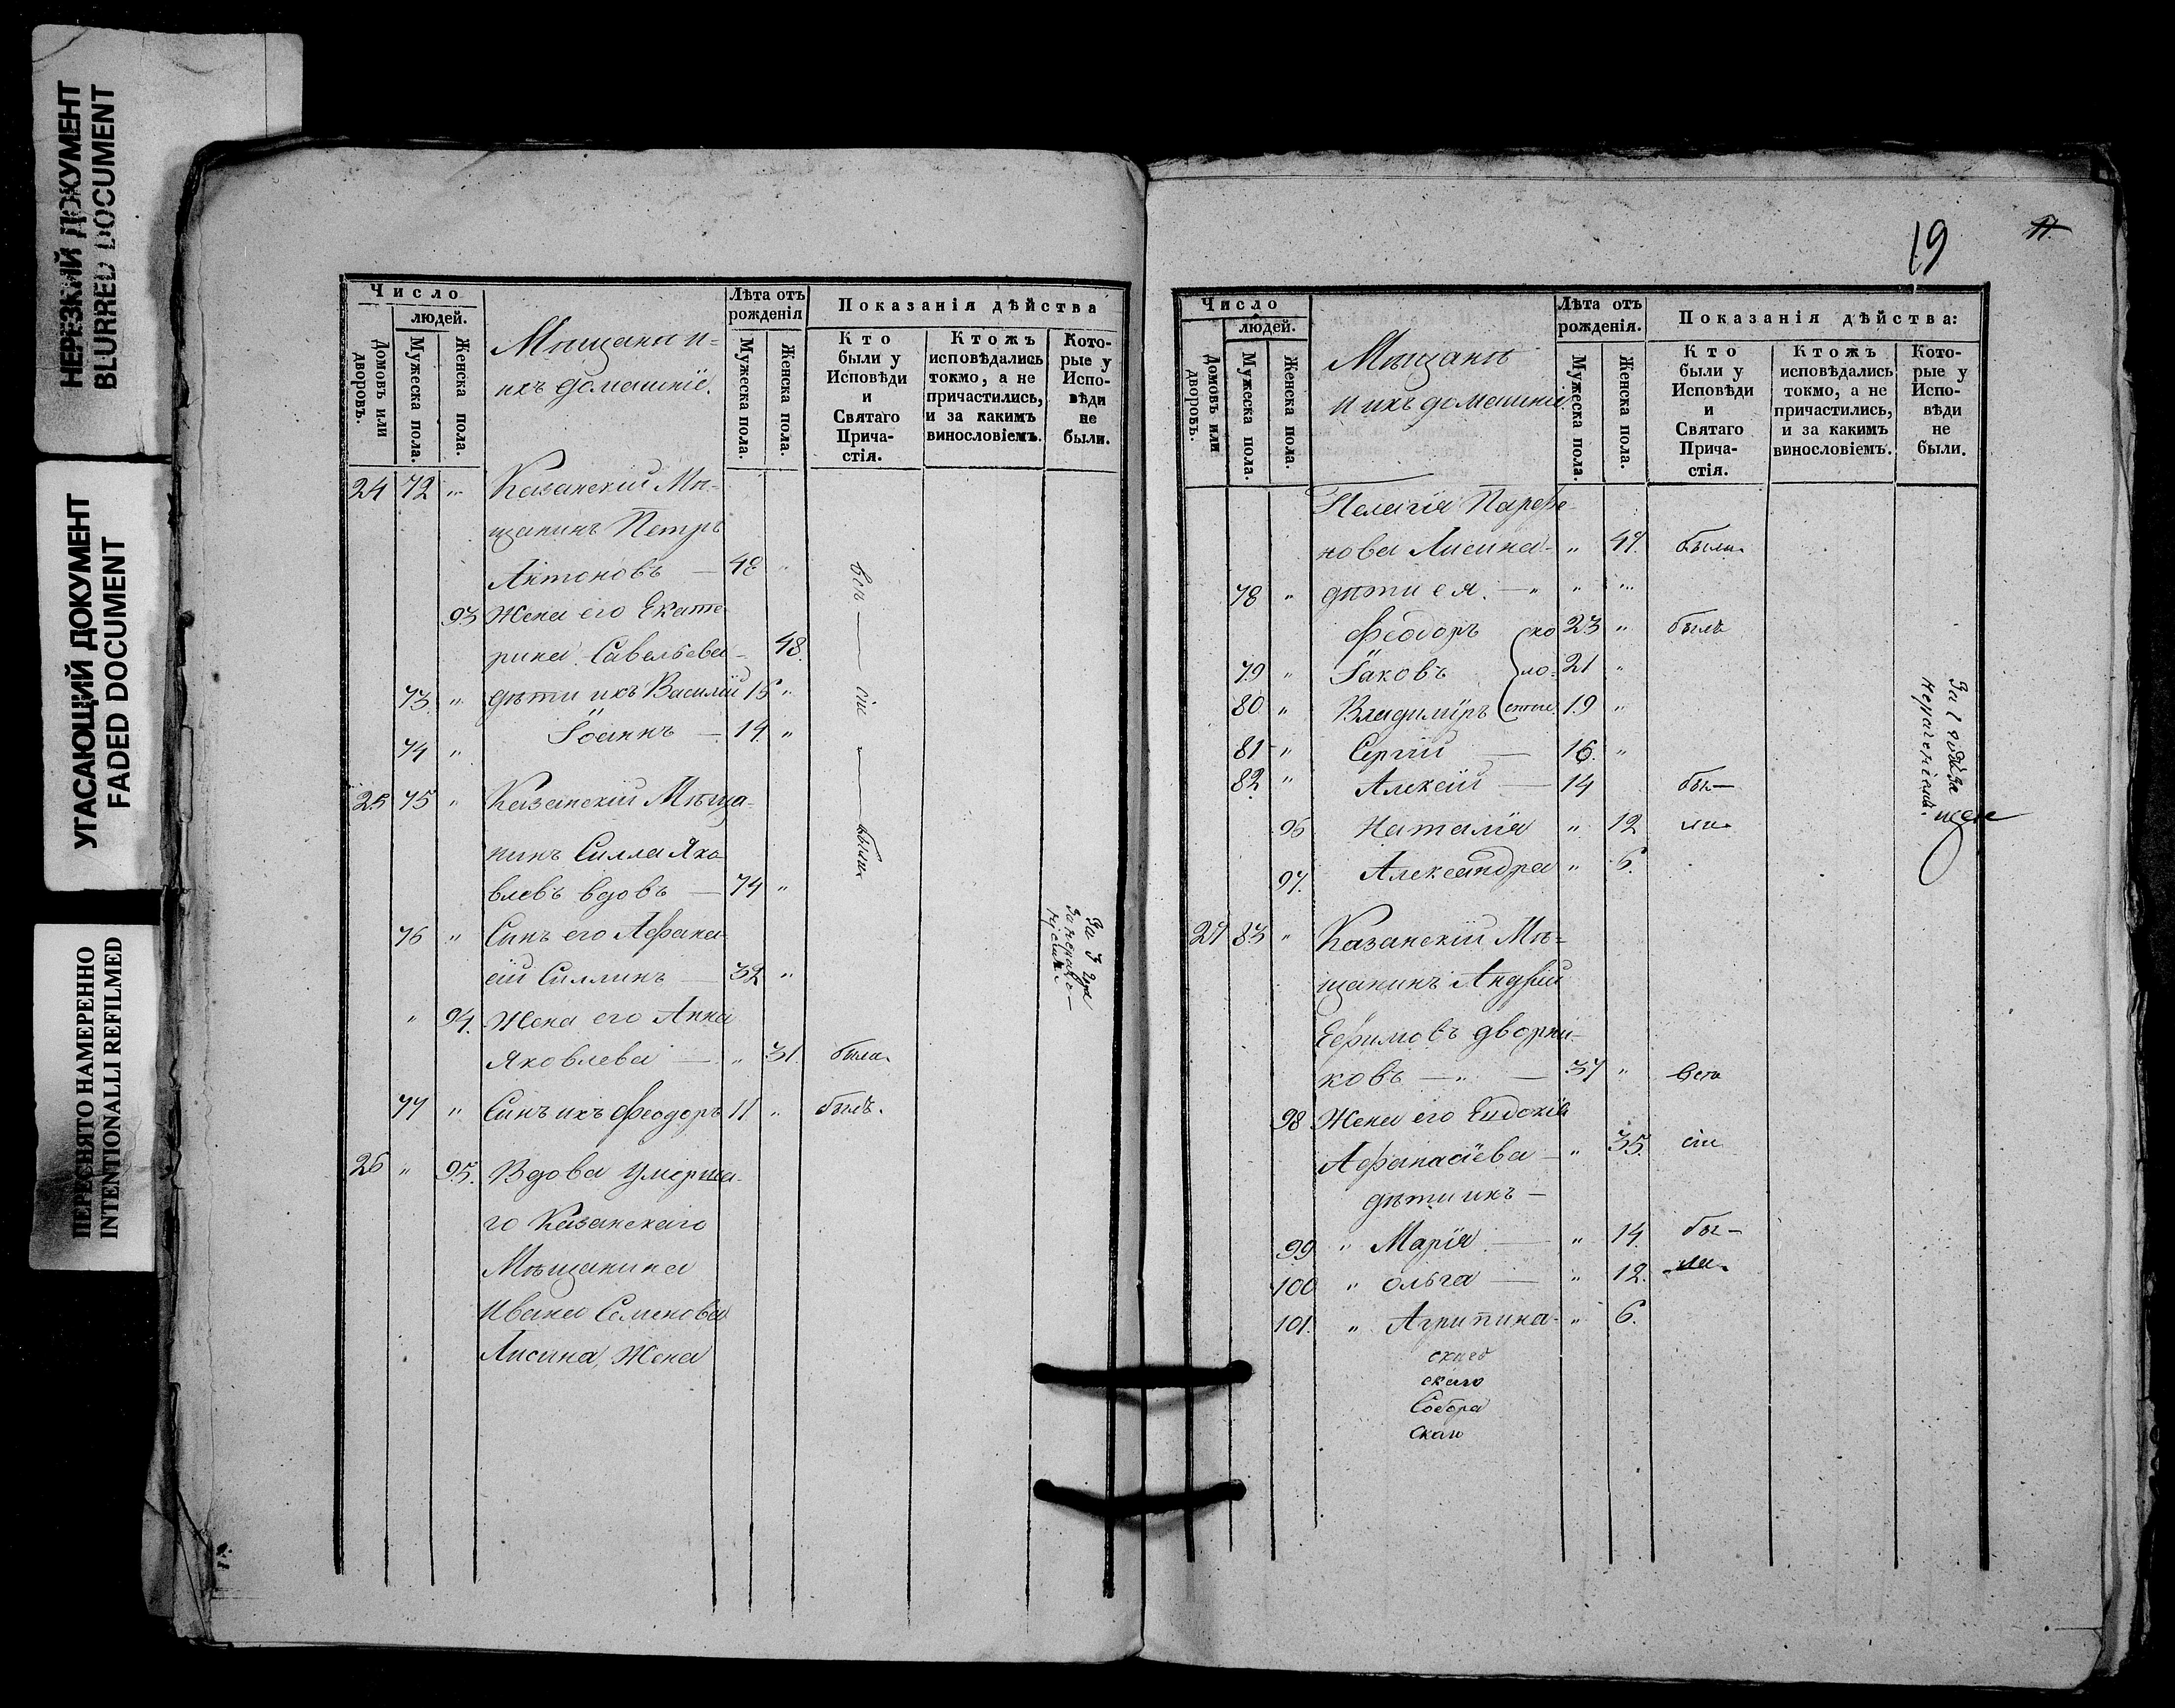 НЕРЕЗКИЙ ДОКУМЕНТ
BLURRED DOCUMENT
УГАСАЮЩИЙ ДОКУМЕНТ
FADED DOCUMENT
ПЕРЕСНЯТО НАМЕРЕННО
INTENTIONALLI REFILMED
Число
людей.
Домовъ или дворовъ.
Мужеска пола.
Женска пола.
Мѣщане и
ихъ домашніе.
Лѣта отъ рожденія
Мужеска пола.
Женска пола.
Показанія дѣйства
Кто были у Исповѣди и Святаго Прича-стія.
Ктожъ исповѣдались токмо, а не причастились, и за какимъ винословіемъ.
Кото-рые у Испо-вѣди не были.
24 72 " Казанскій Мѣ-
щанинъ Петръ
Антоновъ — 48 "
93 Жена его Екате
рина Савельева - 48.
73. " дѣти ихъ Василій 16 "
74 " Іоаннъ — 14 "
всѣ — сіи — были
25 75 " Казанскій Мѣща-
нинъ Силла Яко
влевъ вдовъ — 74 "
76 " Сынъ его Афана-
сій Силлинъ — 32 "
" 94. Жена его Анна
Яковлева — " 31. была.
77 " Сынъ ихъ Феодоръ 11 " былъ.
26 " 95. Вдова умерша-
го Казанскаго
Мѣщанина
Ивана Семенова
Лисина, Жена
19
Число
людей.
Домовъ или дворовъ.
Мужеска пола.
Женска пола.
Мѣщане
и ихъ домашніе.
Лѣта отъ рожденія.
Мужеска пола.
Женска пола.
Показанія дѣйства:
Кто были у Исповѣди и Святаго Прича-стія.
Ктожъ исповѣдались токмо, а не причастились, и за какимъ винословіемъ.
Кото-рые у Испо-вѣди не были.
Пелагія Парѳе-
нова Лисина - " 47. была.
78 " дѣти ея. — " " "
Феодоръ 23 " былъ
79 " Іаковъ 21 "
80 " Владиміръ 19 "
81 " Сергій — 16. "
82. " Алексій — 14 бы—
96 Наталія " 12 ли.
97. Александра " 6.
27 83 " Казанскій Мѣ-
щанинъ Андрій
Ефимовъ дворни-
ковъ — " — 37 " Всѣ
98 Жена его Евдокія
Афанасіева — " 35. сіи
дѣти ихъ —
99 " Марія — " 14. бы—
100 " Ольга — " 12. ли.
101. " Агрипина - " 6.
скаго
скаго
Собора
скаго